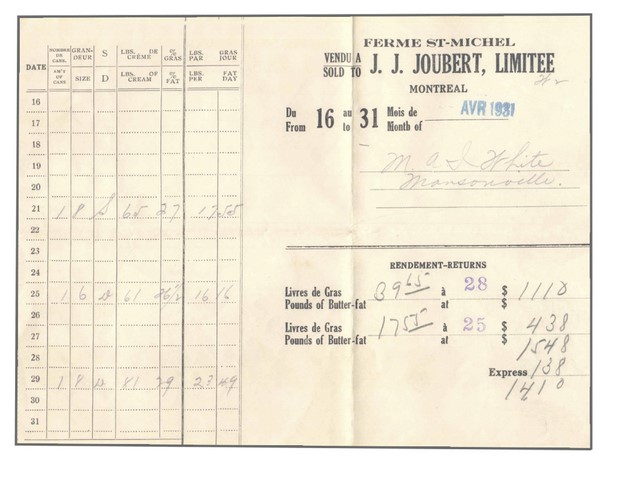 FERME ST-MICHEL
VENDU A
SOLD TO J. J. JOUBERT, LIMITEE
MONTREAL
Du From 16 au to 31 Mois de Month of AVR 1931
M. A. J. White
Mansonville.
DATE NOMBRE DE CANS. GRANDEUR S LBS. DE CRÈME % GRAS LBS. PAR GRAS JOUR
AM'T OF CANS SIZE D LBS. OF CREAM % FAT LBS. PER FAT DAY
16
17
18
19
20
21 1 8 S 65 27 17.55
22
23
24
25 1 6 D 61 26½ 16 16
26
27
28
29 1 8 D 81 29 23 49
30
31
RENDEMENT-RETURNS
Livres de Gras 39 65 à 28 $ 1110
Pounds of Butter-fat at $
Livres de Gras 17 55 à 25 $ 438
Pounds of Butter-fat at $ 1548
Express 138
1410